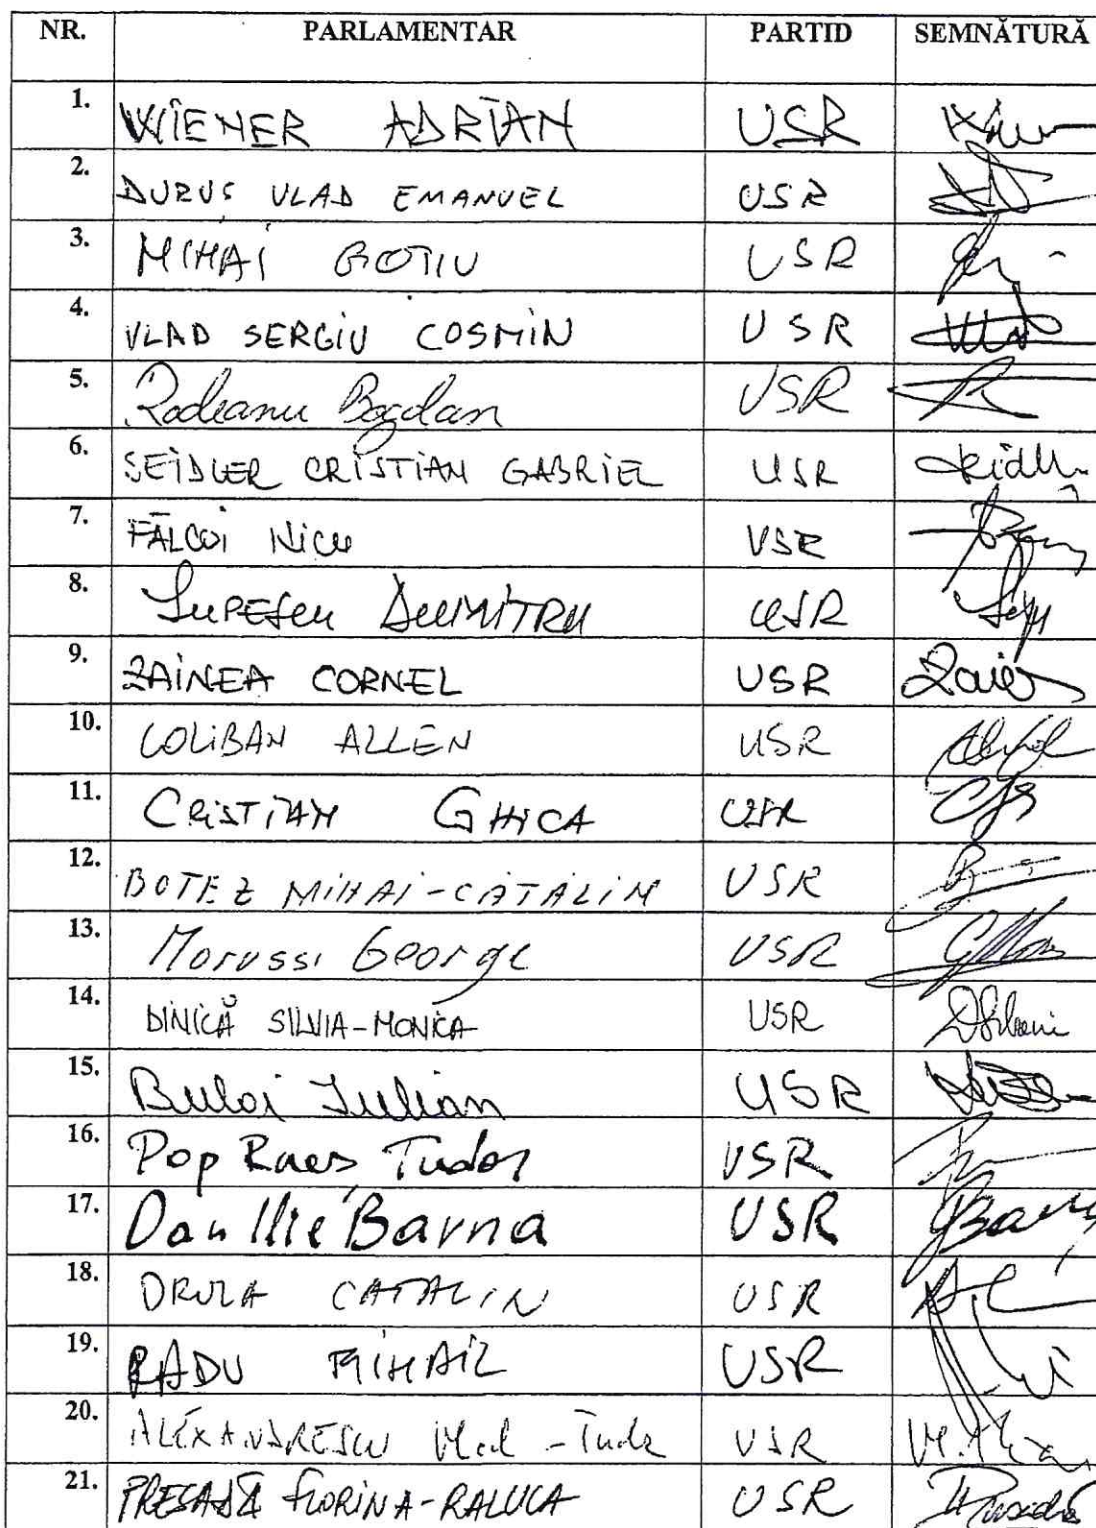 NR. PARLAMENTAR PARTID SEMNĂTURĂ
1. WIENER ADRIAN USR
2. DURUȘ VLAD EMANUEL USR
3. MIHAI GOȚIU USR
4. VLAD SERGIU COSMIN USR
5. Rodeanu Bogdan USR
6. SEIDLER CRISTIAN GABRIEL USR
7. FĂLCOI Nicu USR
8. LUPESCU DUMITRU USR
9. ZAINEA CORNEL USR
10. COLIBAN ALLEN USR
11. CRISTIAN GHICA USR
12. BOTEZ MIHAI-CĂTĂLIN USR
13. Marussi George USR
14. DINICĂ SILVIA-MONICA USR
15. Bulai Iulian USR
16. Pop Rareș Tudor USR
17. Dan Ilie Barna USR
18. DRULA CATALIN USR
19. RADU MIHAIL USR
20. ALEXANDRESCU Vlad - Tudor USR
21. PRESADĂ FLORINA-RALUCA USR